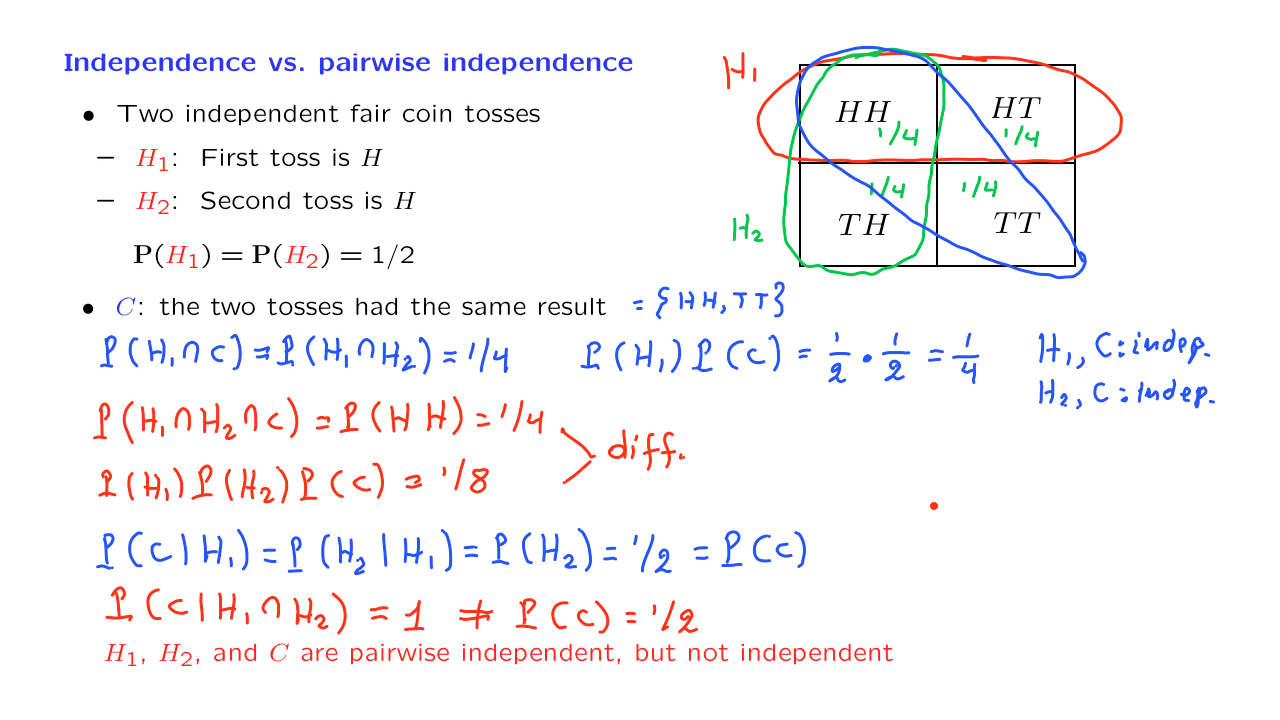 Independence vs. pairwise independence
• Two independent fair coin tosses
– H₁: First toss is H
– H₂: Second toss is H
P(H₁) = P(H₂) = 1/2
H₁
HH HT
1/4 1/4
1/4 1/4
H₂
TH TT
• C: the two tosses had the same result = {HH, TT}
P(H₁∩C) = P(H₁∩H₂) = 1/4 P(H₁)P(C) = 1/2 • 1/2 = 1/4 H₁, C: indep.
H₂, C: indep.
P(H₁∩H₂∩C) = P(HH) = 1/4
diff.
P(H₁)P(H₂)P(C) = 1/8
P(C|H₁) = P(H₂|H₁) = P(H₂) = 1/2 = P(C)
P(C|H₁∩H₂) = 1 ≠ P(C) = 1/2
H₁, H₂, and C are pairwise independent, but not independent